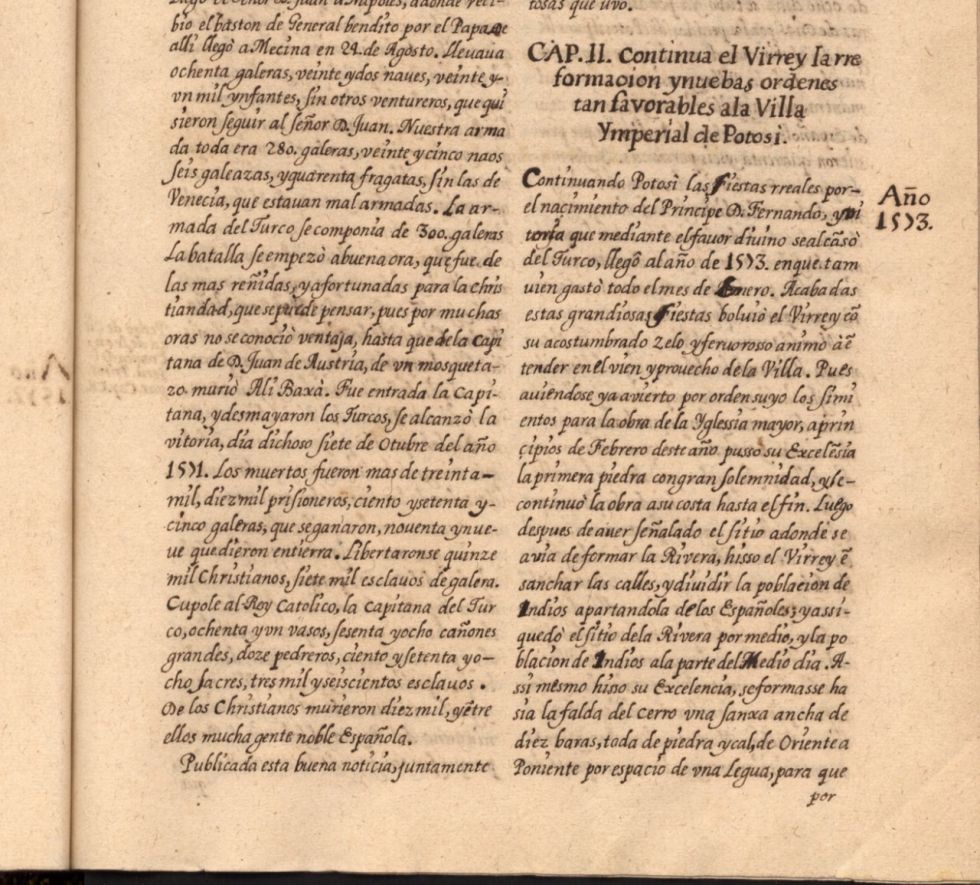 llegò el Señor D. Juan a Napoles, adonde reci-
bio el baston de General bendito por el Papa, de
alli llegò a Mecina en 24. de Agosto. Lleuaua
ochenta galeras, veinte ydos naues, veinte y-
vn mil ynfantes, sin otros ventureros, que qui
sieron seguir al señor D. Juan. Nuestra arma
da toda era 280. galeras, veinte y cinco naos
seis galeazas, y quarenta fragatas, sin las de
Venecia, que estauan mal armadas. La ar-
mada del Turco se componia de 300. galeras
La batalla se empezò abuena ora, que fue de
las mas reñidas, y afortunadas para la chris
tiandad, que se puede pensar, pues por muchas
oras no se conociò ventaja, hasta que de la Capi
tana de D. Juan de Austria, de vn mosqueta-
zo muriò Ali Baxà. Fue entrada la Capi-
tana, y desmayaron los Turcos, se alcanzò la
vitoria, dia dichoso siete de Otubre del año
1571. Los muertos fueron mas de treinta-
mil, diez mil prisioneros, ciento y setenta y-
cinco galeras, que se ganaron, nouenta y nue-
ue que dieron en tierra. Libertaronse quinze
mil Christianos, siete mil esclauos de galera.
Cupole al Rey Catolico, la Capitana del Tur
co, ochenta y vn vasos, sesenta y ocho cañones
grandes, doze pedreros, ciento y setenta y o-
cho sacres, tres mil y seiscientos esclauos.
De los Christianos murieron diez mil, y ẽtre
ellos mucha gente noble Española.
Publicada esta buena noticia, juntamente
tosas que uvo.
CAP. II. Continua el Virrey la rre
formacion y nuebas ordenes
tan favorables a la Villa
Ymperial de Potosi.
Continuando Potosì las Fiestas rreales por-
el nacimiento del Principe D. Fernando, y vi
toria que mediante el fauor diuino se alcãsò
del Turco, llegô al año de 1573. en que tam
uien gastò todo el mes de Enero. Acabadas
estas grandiosas Fiestas boluiò el Virrey cõ
su acostumbrado zelo y feruoroso animo â ẽ
tender en el vien y prouecho de la Villa. Pues
auiendose ya avierto por orden suyo los simi
entos para la obra de la Yglessia mayor, a prin
çipios de Febrero deste año pusso su Excelẽsia
la primera piedra con gran solemnidad, y se-
continuò la obra a su costa hasta el fin. Luego
despues de auer señalado el sitio adonde se
avia de formar la Rivera, hisso el Virrey ẽ
sanchar las calles, y diuidir la poblacion de
Indios apartandola de los Españoles; y assi-
quedò el sitio de la Rivera por medio, y la po
blacion de Indios a la parte del Medio dia. A-
ssi mesmo hisso su Excelencia, se formasse ha
sia la falda del cerro vna sanxa ancha de
diez baras, toda de piedra y cal, de Oriente a
Poniente por espacio de vna Legua, para que
por
Año
1573.